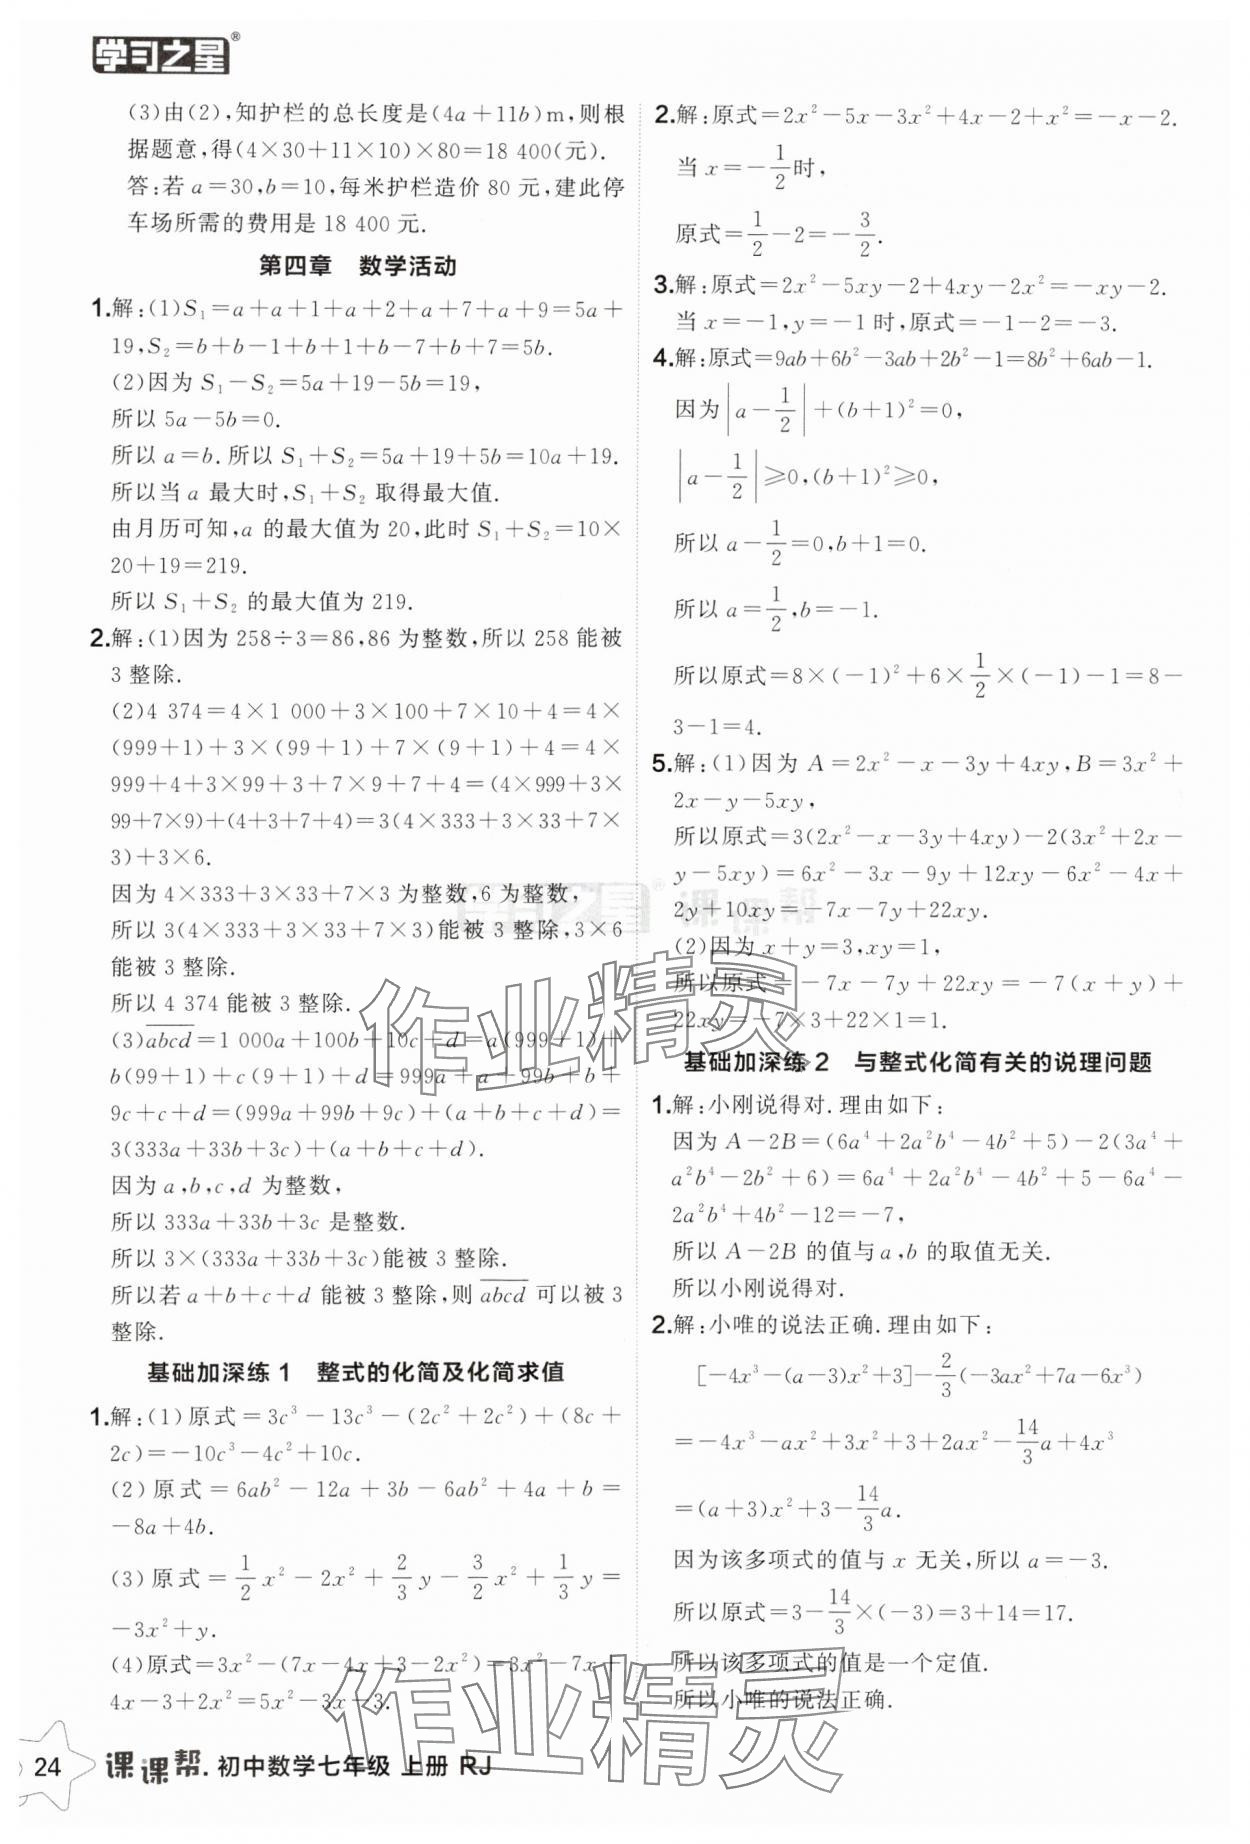 学习之星®
(3)由(2),知护栏的总长度是(4a+11b)m,则根
据题意,得(4×30+11×10)×80=18 400(元).
答:若 a=30,b=10,每米护栏造价 80 元,建此停
车场所需的费用是 18 400 元.
第四章 数学活动
1.解:(1)S₁=a+a+1+a+2+a+7+a+9=5a+
19,S₂=b+b-1+b+1+b-7+b+7=5b.
(2)因为 S₁-S₂=5a+19-5b=19,
所以 5a-5b=0.
所以 a=b.所以 S₁+S₂=5a+19+5b=10a+19.
所以当 a 最大时,S₁+S₂ 取得最大值.
由月历可知,a 的最大值为 20,此时 S₁+S₂=10×
20+19=219.
所以 S₁+S₂ 的最大值为 219.
2.解:(1)因为 258÷3=86,86 为整数,所以 258 能被
3 整除.
(2)4 374=4×1 000+3×100+7×10+4=4×
(999+1)+3×(99+1)+7×(9+1)+4=4×
999+4+3×99+3+7×9+7+4=(4×999+3×
99+7×9)+(4+3+7+4)=3(4×333+3×33+7×
3)+3×6.
因为 4×333+3×33+7×3 为整数,6 为整数,
所以 3(4×333+3×33+7×3)能被 3 整除,3×6
能被 3 整除.
所以 4 374 能被 3 整除.
(3)a̅b̅c̅d̅=1 000a+100b+10c+d=a(999+1)+
b(99+1)+c(9+1)+d=999a+a+99b+b+
9c+c+d=(999a+99b+9c)+(a+b+c+d)=
3(333a+33b+3c)+(a+b+c+d).
因为 a,b,c,d 为整数,
所以 333a+33b+3c 是整数.
所以 3×(333a+33b+3c)能被 3 整除.
所以若 a+b+c+d 能被 3 整除,则 a̅b̅c̅d̅ 可以被 3
整除.
基础加深练 1 整式的化简及化简求值
1.解:(1)原式=3c³-13c³-(2c²+2c²)+(8c+
2c)=-10c³-4c²+10c.
(2)原式=6ab²-12a+3b-6ab²+4a+b=
-8a+4b.
(3)原式=1/2x²-2x²+2/3y-3/2x²+1/3y=
-3x²+y.
(4)原式=3x²-(7x-4x+3-2x²)=3x²-7x+
4x-3+2x²=5x²-3x-3.
2.解:原式=2x²-5x-3x²+4x-2+x²=-x-2.
当 x=-1/2时,
原式=1/2-2=-3/2.
3.解:原式=2x²-5xy-2+4xy-2x²=-xy-2.
当 x=-1,y=-1 时,原式=-1-2=-3.
4.解:原式=9ab+6b²-3ab+2b²-1=8b²+6ab-1.
因为|a-1/2|+(b+1)²=0,
|a-1/2|≥0,(b+1)²≥0,
所以 a-1/2=0,b+1=0.
所以 a=1/2,b=-1.
所以原式=8×(-1)²+6×1/2×(-1)-1=8-
3-1=4.
5.解:(1)因为 A=2x²-x-3y+4xy,B=3x²+
2x-y-5xy,
所以原式=3(2x²-x-3y+4xy)-2(3x²+2x-
y-5xy)=6x²-3x-9y+12xy-6x²-4x+
2y+10xy=-7x-7y+22xy.
(2)因为 x+y=3,xy=1,
所以原式=-7x-7y+22xy=-7(x+y)+
22xy=-7×3+22×1=1.
基础加深练 2 与整式化简有关的说理问题
1.解:小刚说得对.理由如下:
因为 A-2B=(6a⁴+2a²b⁴-4b²+5)-2(3a⁴+
a²b⁴-2b²+6)=6a⁴+2a²b⁴-4b²+5-6a⁴-
2a²b⁴+4b²-12=-7,
所以 A-2B 的值与 a,b 的取值无关.
所以小刚说得对.
2.解:小唯的说法正确.理由如下:
[-4x³-(a-3)x²+3]-2/3(-3ax²+7a-6x³)
=-4x³-ax²+3x²+3+2ax²-14/3a+4x³
=(a+3)x²+3-14/3a.
因为该多项式的值与 x 无关,所以 a=-3.
所以原式=3-14/3×(-3)=3+14=17.
所以该多项式的值是一个定值.
所以小唯的说法正确.
学习之星® 课课帮
作业精灵
作业精灵
24 课课帮.初中数学七年级 上册 RJ